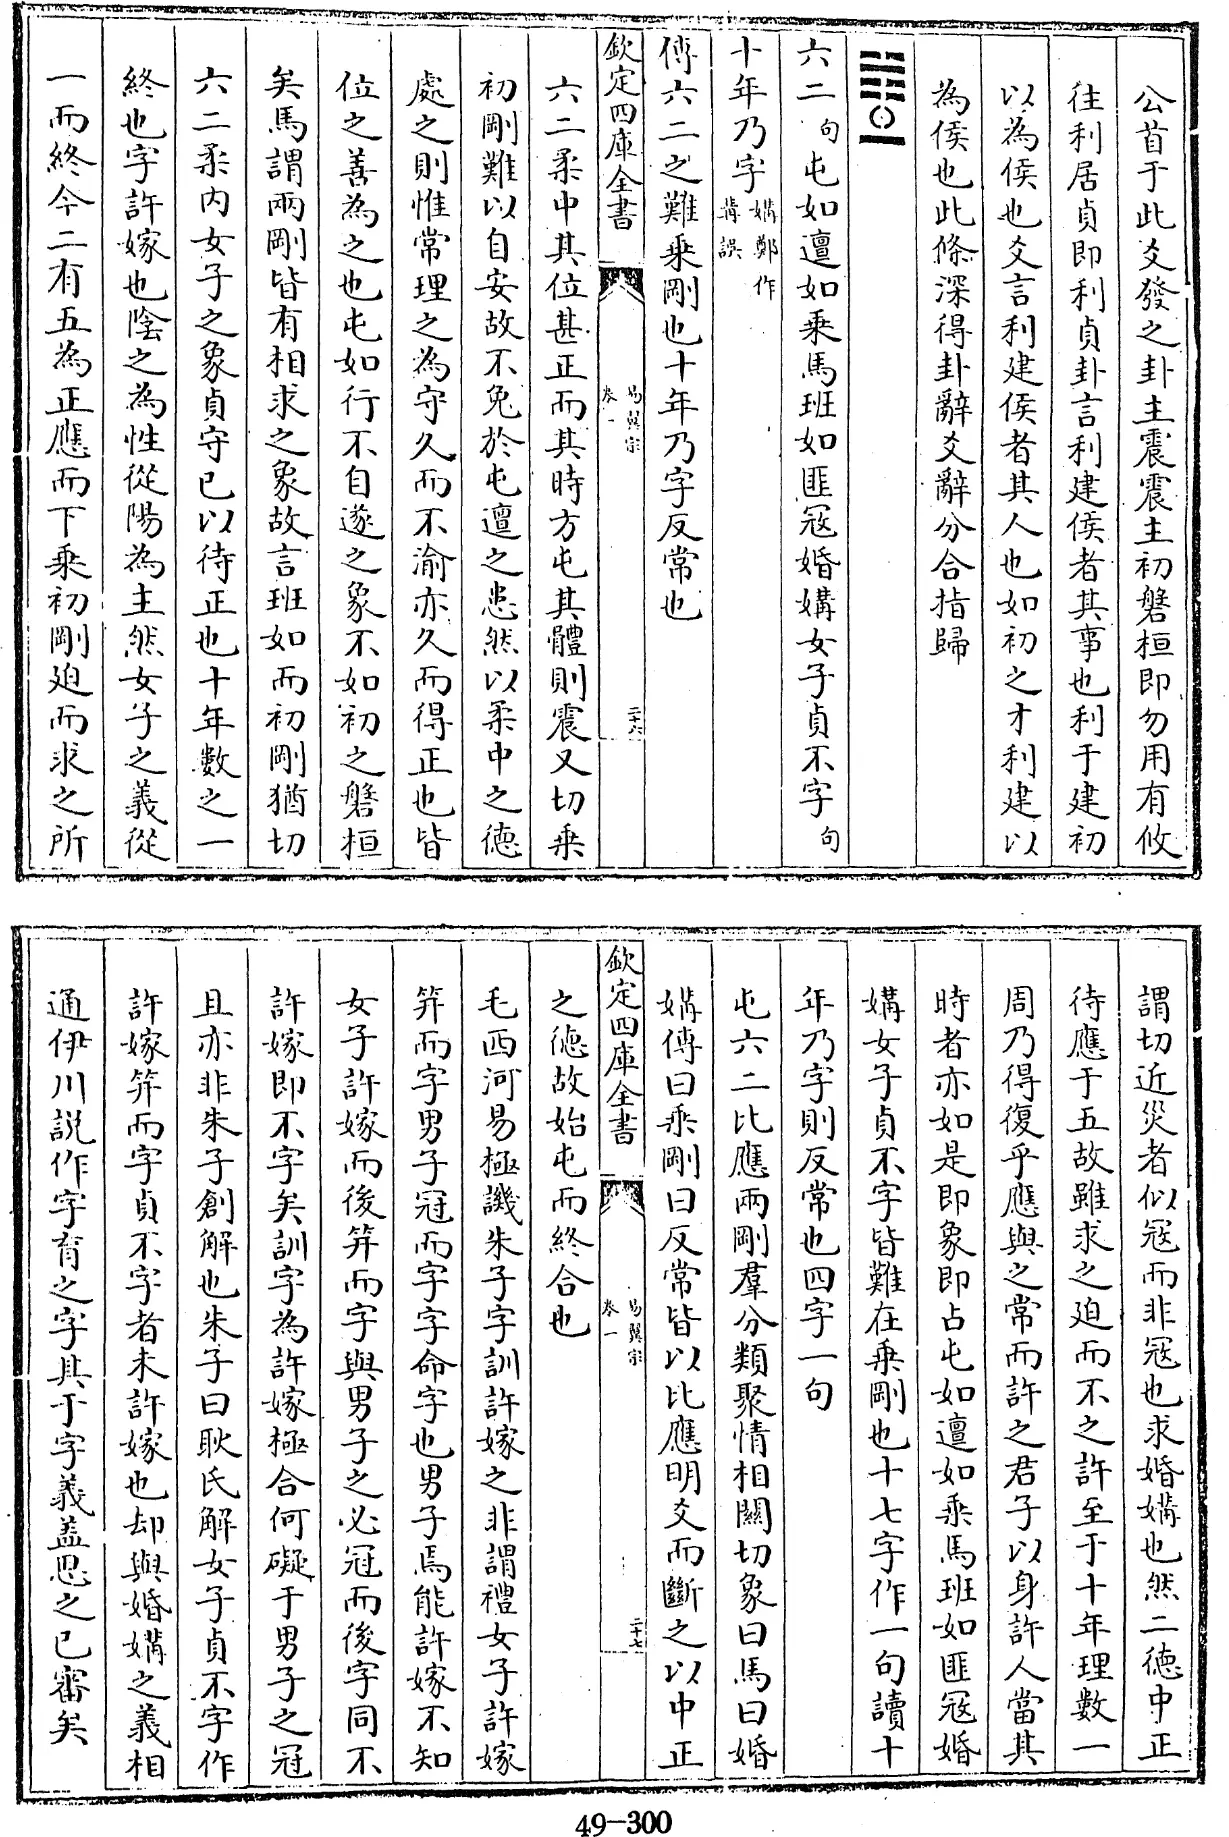 公首于此爻發之卦主震震主初磐桓即勿用有攸
往利居貞即利貞卦言利建侯者其事也利于建初
以為侯也爻言利建侯者其人也如初之才利建以
為侯也此條深得卦辭爻辭分合指歸
六二句屯如邅如乘馬班如匪冦婚媾女子貞不字句
十年乃字媾鄭作冓誤
傳六二之難乘剛也十年乃字反常也
欽定四庫全書 易翼宗 卷一 二十六
六二柔中其位甚正而其時方屯其體則震又切乘
初剛難以自安故不免於屯邅之患然以柔中之德
處之則惟常理之為守久而不渝亦久而得正也皆
位之善為之也屯如行不自遂之象不如初之磐桓
矣馬謂兩剛皆有相求之象故言班如而初剛猶切
六二柔内女子之象貞守已以待正也十年數之一
終也字許嫁也隂之為性從陽為主然女子之義從
一而終今二有五為正應而下乘初剛廹而求之所
謂切近災者似冦而非冦也求婚媾也然二德中正
待應于五故雖求之廹而不之許至于十年理數一
周乃得復乎應與之常而許之君子以身許人當其
時者亦如是即象即占屯如邅如乘馬班如匪冦婚
媾女子貞不字皆難在乘剛也十七字作一句讀十
年乃字則反常也四字一句
屯六二比應兩剛羣分類聚情相關切象曰馬曰婚
媾傳曰乘剛曰反常皆以比應明爻而斷之以中正
欽定四庫全書 易翼宗 卷一 二十七
之德故始屯而終合也
毛西河易極譏朱子字訓許嫁之非謂禮女子許嫁
笄而字男子冠而字字命字也男子焉能許嫁不知
女子許嫁而後笄而字與男子之必冠而後字同不
許嫁即不字矣訓字為許嫁極合何礙于男子之冠
且亦非朱子創解也朱子曰耿氏解女子貞不字作
許嫁笄而字貞不字者未許嫁也却與婚媾之義相
通伊川說作字育之字其于字義葢思之已審矣
49-300